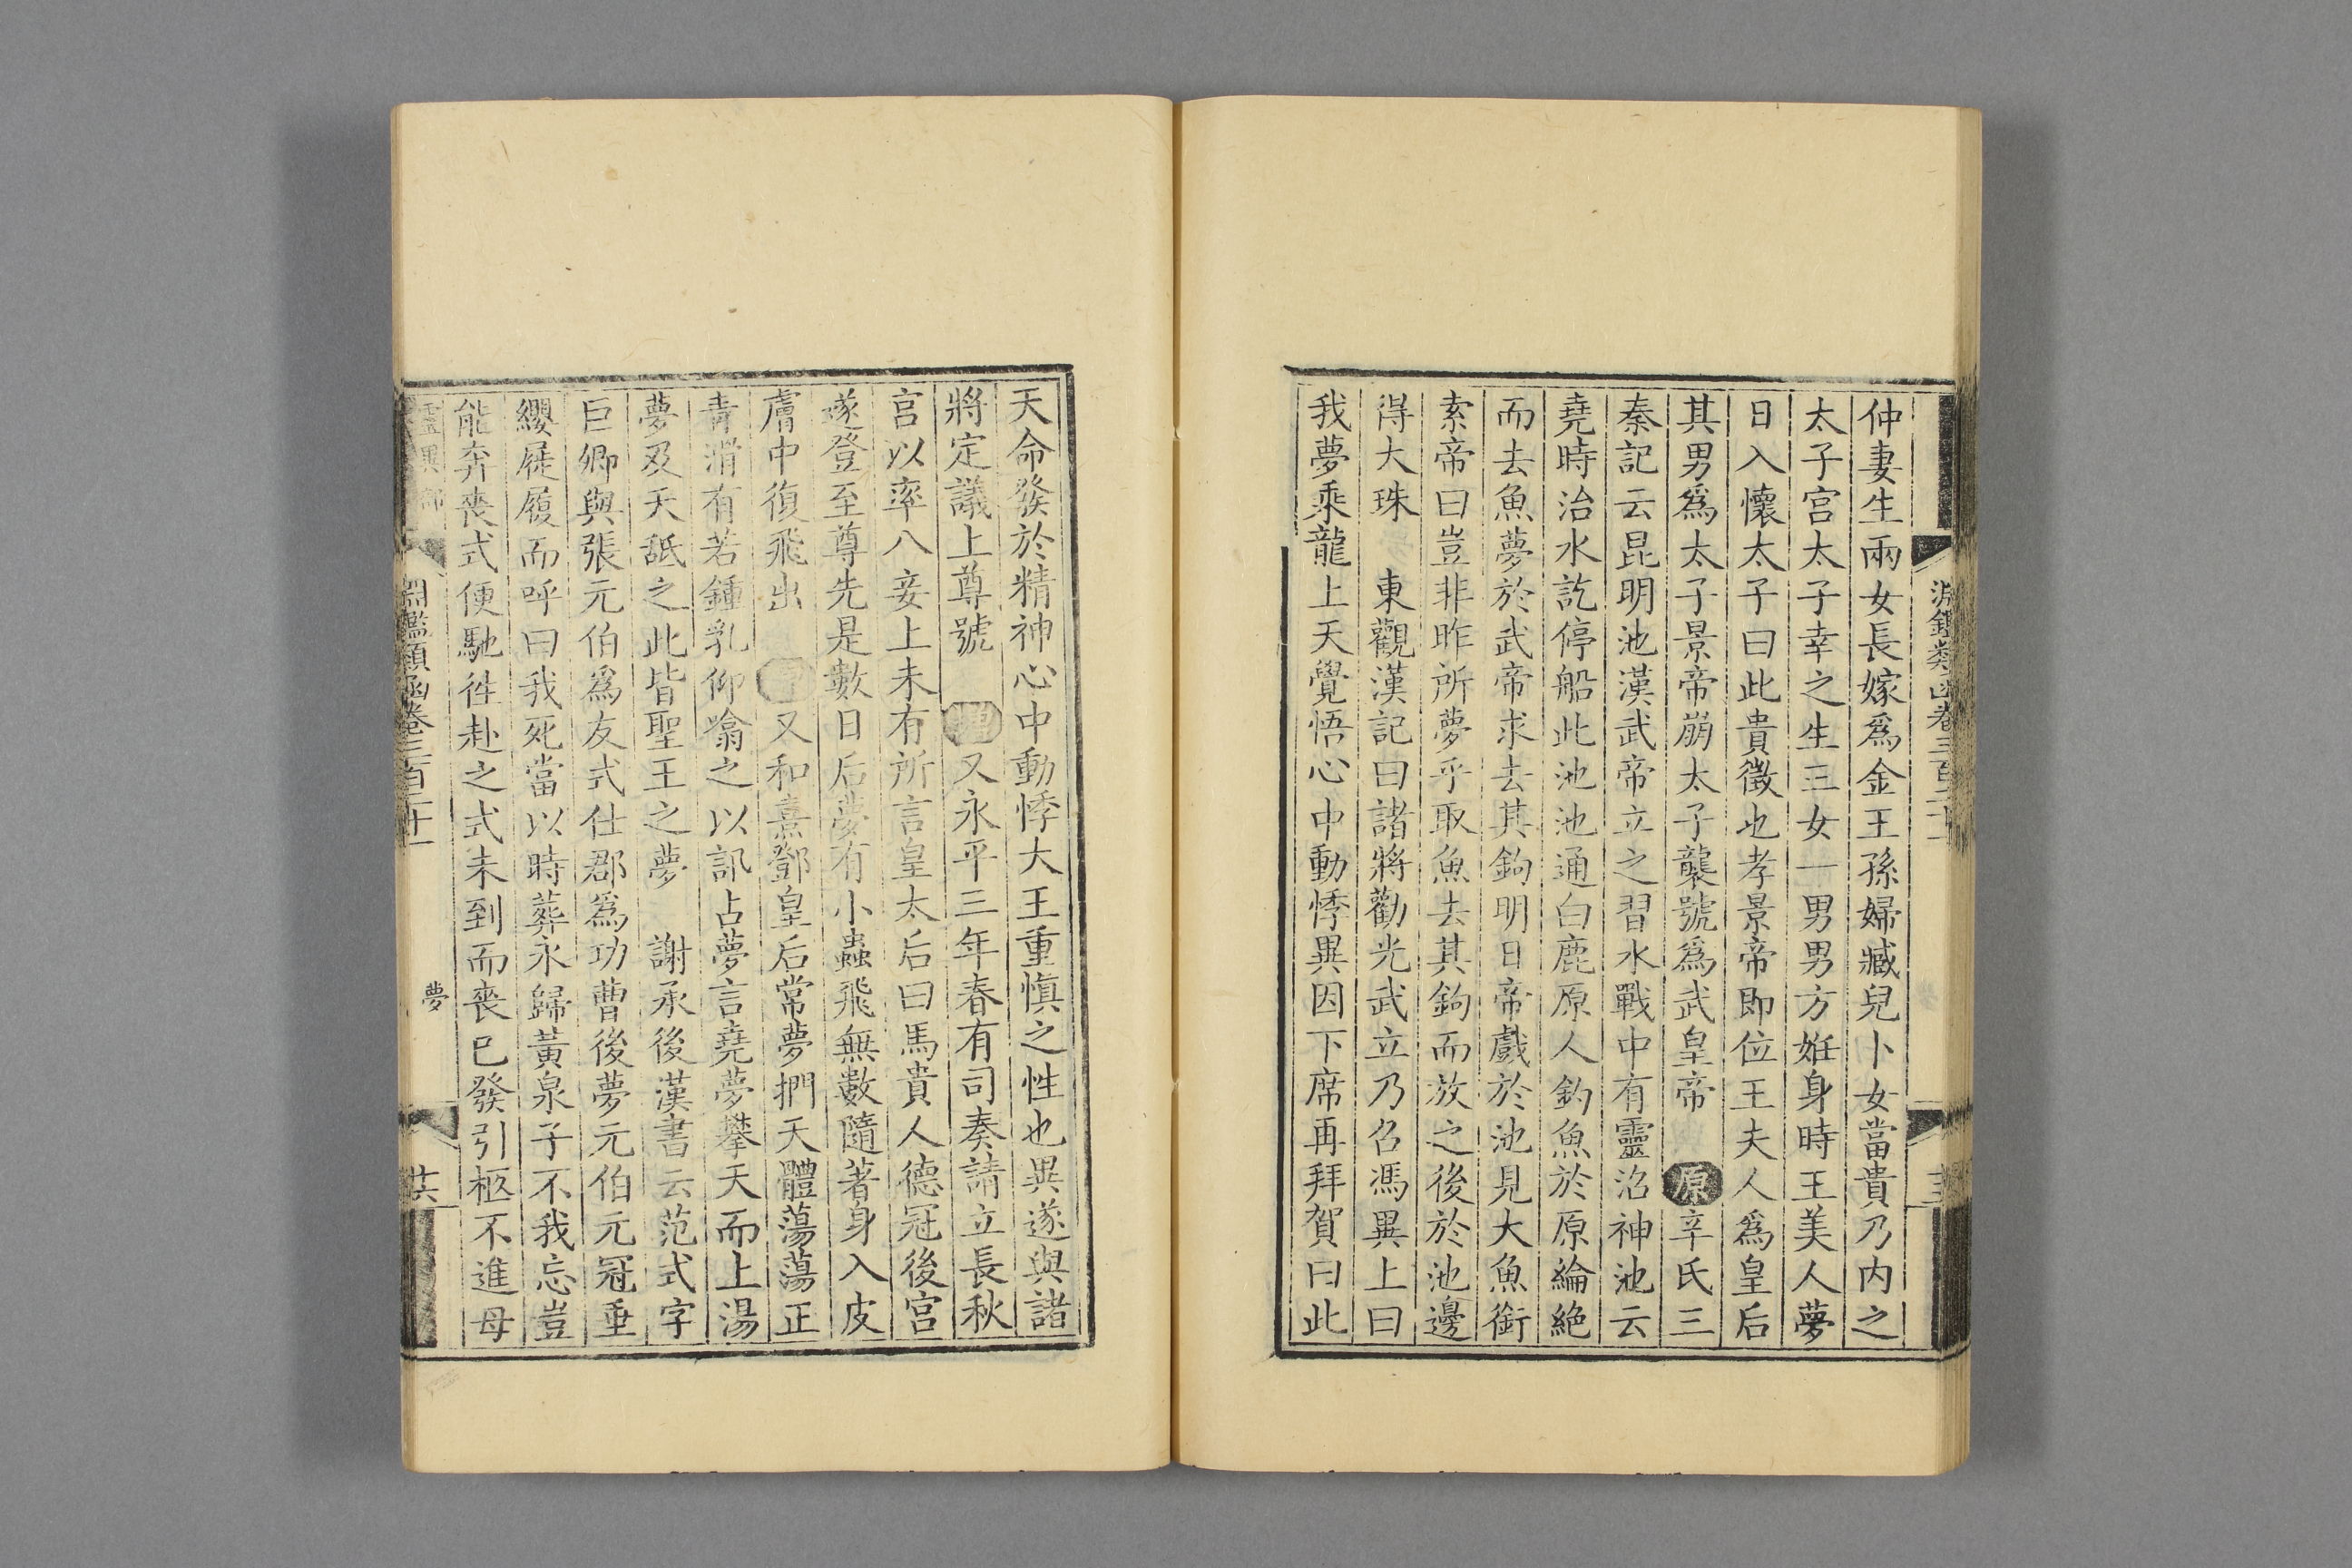 淵鑑類函卷三百二十一
仲妻生兩女長嫁爲金王孫婦臧兒卜女當貴乃内之
太子宫太子幸之生三女一男男方姙身時王美人夢
日入懷太子曰此貴徵也孝景帝即位王夫人爲皇后
其男爲太子景帝崩太子襲號爲武皇帝 原辛氏三
秦記云昆明池漢武帝立之習水戰中有靈沼神池云
堯時治水訖停船此池池通白鹿原人釣魚於原綸絶
而去魚夢於武帝求去其鉤明日帝戲於池見大魚銜
索帝曰豈非昨所夢乎取魚去其鉤而放之後於池邊
得大珠 東觀漢記曰諸將勸光武立乃召馮異上曰
我夢乘龍上天覺悟心中動悸異因下席再拜賀曰此
天命發於精神心中動悸大王重慎之性也異遂與諸
將定議上尊號 又永平三年春有司奏請立長秋
宫以率八妾上未有所言皇太后曰馬貴人德冠後宫
遂登至尊先是數日后夢有小蟲飛無數隨著身入皮
膚中復飛出 又和熹鄧皇后常夢捫天體蕩蕩正
青滑有若鍾乳仰噏之以訊占夢言堯夢攀天而上湯
夢及天舐之此皆聖王之夢 謝承後漢書云范式字
巨卿與張元伯爲友式仕郡爲功曹後夢元伯元冠垂
纓屣履而呼曰我死當以時葬永歸黃泉子不我忘豈
能奔喪式便馳徃赴之式未到而喪已發引柩不進母
靈異部 淵鑑類函卷三百二十一 夢 廿六